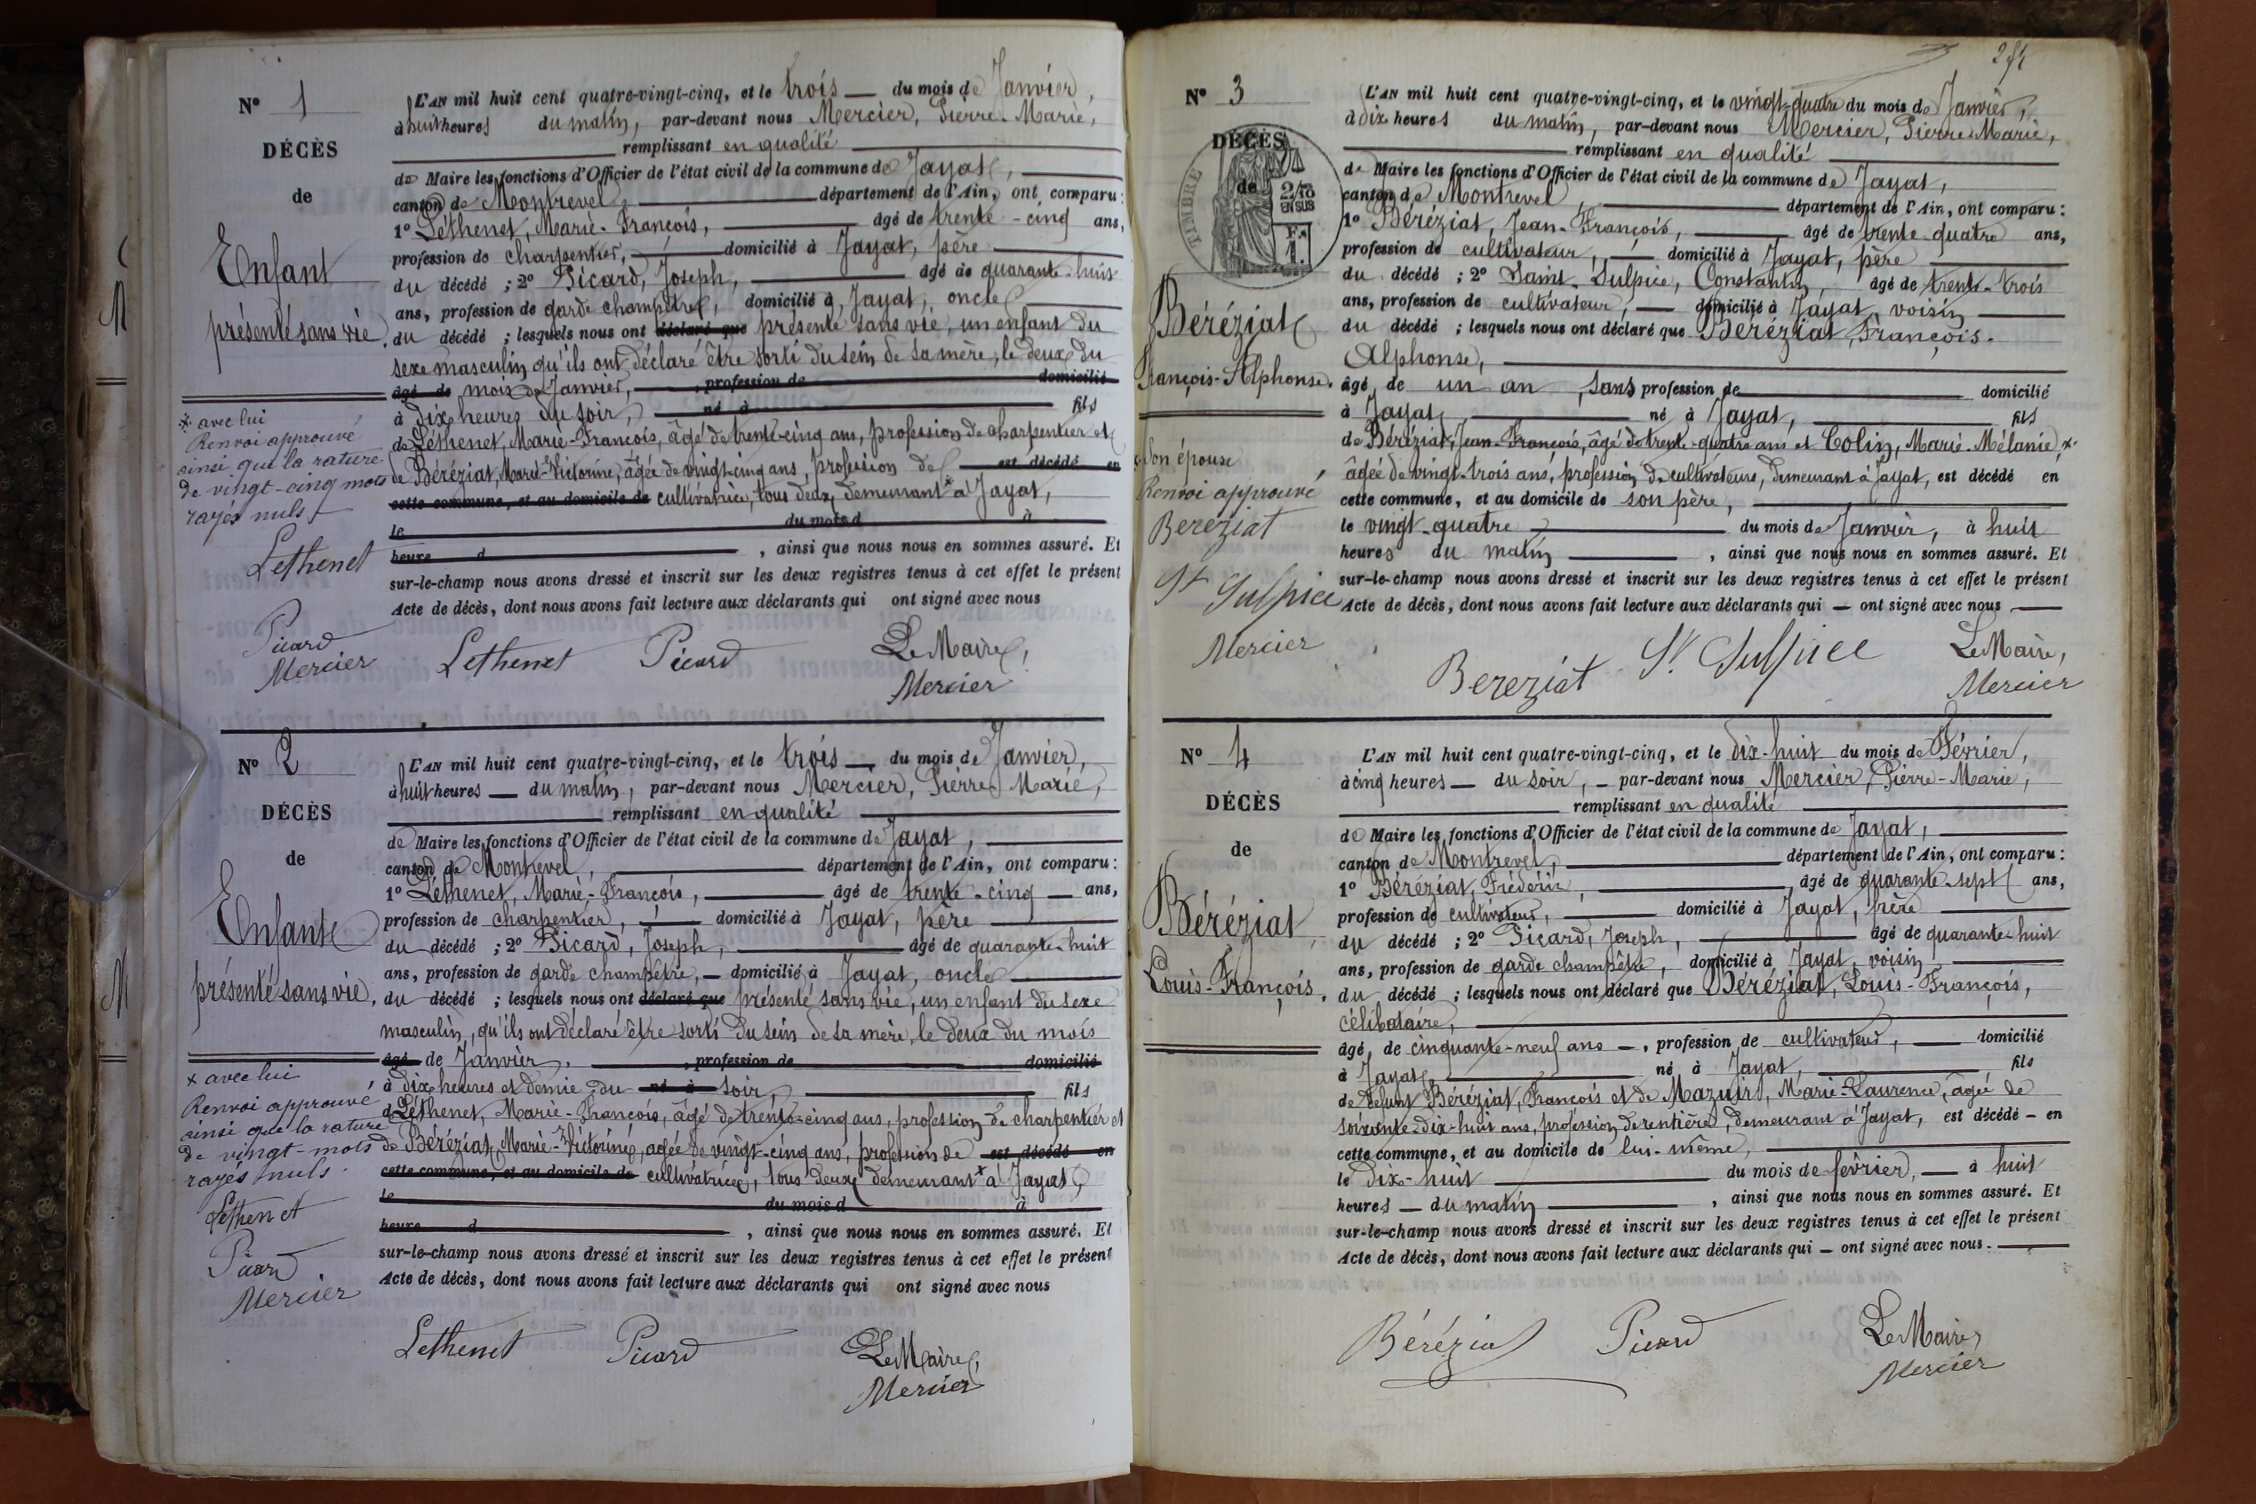 N° 1
DÉCÈS
de
Enfant
présenté sans vie.
L'AN mil huit cent quatre-vingt-cinq, et le trois — du mois de Janvier,
à huit heures du matin, par-devant nous Mercier, Pierre-Marie,
remplissant en qualité
de Maire les fonctions d'Officier de l'état civil de la commune de Jayat,
canton de Montrevel, département de l'Ain, ont comparu :
1° Léthenet, Marie-François, âgé de trente-cinq ans,
profession de charpentier, domicilié à Jayat, père
du décédé ; 2° Picard, Joseph, âgé de quarante-huit
ans, profession de garde champêtre, domicilié à Jayat, oncle
du décédé ; lesquels nous ont déclaré que présenté sans vie, un enfant du
sexe masculin qu'ils ont déclaré être sorti du sein de sa mère, le deux du
âgé de mois de Janvier, , profession de domicilié
à dix heures du soir, né à fils
de Léthenet, Marie-François, âgé de trente-cinq ans, profession de charpentier et
de Béréziat, Marie-Victorine, âgée de vingt-cinq ans, profession de est décédé en
cette commune, et au domicile de cultivatrice, tous deux, demeurant * à Jayat,
le du mois d à
heure d , ainsi que nous nous en sommes assuré. Et
sur-le-champ nous avons dressé et inscrit sur les deux registres tenus à cet effet le présent
Acte de décès, dont nous avons fait lecture aux déclarants qui ont signé avec nous
* avec lui
Renvoi approuvé
ainsi que la rature
de vingt-cinq mots
rayés nuls
Lethenet
Picard
Mercier
Lethenet Picard Le Maire,
Mercier
N° 2
DÉCÈS
de
Enfant
présenté sans vie.
L'AN mil huit cent quatre-vingt-cinq, et le trois — du mois de Janvier,
à huit heures — du matin, par-devant nous Mercier, Pierre Marie,
remplissant en qualité
de Maire les fonctions d'Officier de l'état civil de la commune de Jayat,
canton de Montrevel, département de l'Ain, ont comparu :
1° Léthenet, Marie-François, âgé de trente-cinq — ans,
profession de charpentier, domicilié à Jayat, père
du décédé ; 2° Picard, Joseph, âgé de quarante-huit
ans, profession de garde champêtre, — domicilié à Jayat, oncle
du décédé ; lesquels nous ont déclaré que présenté sans vie, un enfant du sexe
masculin, qu'ils ont déclaré être sorti du sein de sa mère, le deux du mois
âgé de Janvier, , profession de domicilié
à dix heures et demie du né à soir, fils
de Léthenet, Marie-François, âgé de trente-cinq ans, profession de charpentier et
de Béréziat, Marie-Victorine, agée de vingt-cinq ans, profession de est décédé en
cette commune, et au domicile de cultivatrice, tous deux demeurant * à Jayat,
le du mois d à
heure d , ainsi que nous nous en sommes assuré. Et
sur-le-champ nous avons dressé et inscrit sur les deux registres tenus à cet effet le présent
Acte de décès, dont nous avons fait lecture aux déclarants qui ont signé avec nous
* avec lui
Renvoi approuvé
ainsi que la rature
de vingt-mots
rayés nuls.
Lethenet
Picard
Mercier
Lethenet Picard Le Maire,
Mercier
N° 3
DÉCÈS
de
TIMBRE
2/10
EN SUS
Béréziat
François-Alphonse.
L'AN mil huit cent quatre-vingt-cinq, et le vingt-quatre du mois de Janvier,
à dix heures du matin, par-devant nous Mercier, Pierre-Marie,
remplissant en qualité
de Maire les fonctions d'Officier de l'état civil de la commune de Jayat,
canton de Montrevel, département de l'Ain, ont comparu :
1° Béréziat, Jean-François, âgé de trente-quatre ans,
profession de cultivateur, domicilié à Jayat, père
du décédé ; 2° Saint-Sulpice, Constantin, âgé de trente-trois
ans, profession de cultivateur, — domicilié à Jayat, voisin
du décédé ; lesquels nous ont déclaré que Béréziat, François-
Alphonse,
âgé de un an, sans profession de domicilié
à Jayat, né à Jayat, fils
de Béréziat, Jean-François, âgé de trente-quatre ans et Colin, Marie-Mélanie, *
âgée de vingt-trois ans, profession de cultivateurs, demeurant à Jayat, est décédé en
cette commune, et au domicile de son père,
le vingt-quatre du mois de Janvier, à huit
heures du matin , ainsi que nous nous en sommes assuré. Et
sur-le-champ nous avons dressé et inscrit sur les deux registres tenus à cet effet le présent
Acte de décès, dont nous avons fait lecture aux déclarants qui — ont signé avec nous
* son épouse
Renvoi approuvé
Bereziat
St Sulpice
Mercier
Bereziat St Sulpice Le Maire,
Mercier
N° 4
DÉCÈS
de
Béréziat
Louis-François.
L'AN mil huit cent quatre-vingt-cinq, et le dix-huit du mois de Février,
à cinq heures — du soir, — par-devant nous Mercier, Pierre-Marie,
remplissant en qualité
de Maire les fonctions d'Officier de l'état civil de la commune de Jayat,
canton de Montrevel, département de l'Ain, ont comparu :
1° Béréziat, Frédéric, âgé de quarante-sept ans,
profession de cultivateur, domicilié à Jayat, frère
du décédé ; 2° Picard, Joseph, âgé de quarante-huit
ans, profession de garde champêtre, domicilié à Jayat, voisin
du décédé ; lesquels nous ont déclaré que Béréziat, Louis-François,
célibataire,
âgé de cinquante-neuf ans —, profession de cultivateur, — domicilié
à Jayat, né à Jayat, fils
de défunt Béréziat, François et de Mazuir, Marie-Laurence, âgée de
soixante-dix-huit ans, profession de rentière, demeurant à Jayat, est décédé — en
cette commune, et au domicile de lui-même,
le dix-huit du mois de février, — à huit
heures — du matin , ainsi que nous nous en sommes assuré. Et
sur-le-champ nous avons dressé et inscrit sur les deux registres tenus à cet effet le présent
Acte de décès, dont nous avons fait lecture aux déclarants qui — ont signé avec nous.
Béréziat Picard Le Maire,
Mercier